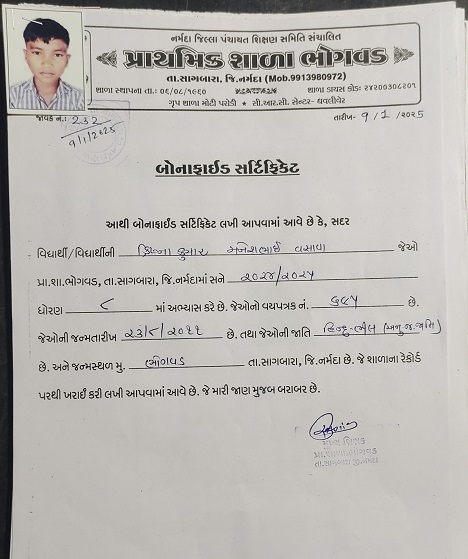 નર્મદા જિલ્લા પંચાયત શિક્ષણ સમિતિ સંચાલિત
પ્રાથમિક શાળા ભોગવડ
તા.સાગબારા, જિ.નર્મદા (Mob.9913980972)
શાળા સ્થાપના તા.: ૦૬/૦૮/૧૯૬૦ શાળા ડાયસ કોડઃ ૨૪૨૦૦૩૦૮૨૦૧
ગૃપ શાળા મોટી પરોડી * સી.આર.સી. સેન્ટર- ધવલીવેર
જાવક નં.: 232 તારીખ- 9/1/૨૦૨૫
9/1/2025
બોનાફાઈડ સર્ટિફિકેટ
આથી બોનાફાઈડ સર્ટિફિકેટ લખી આપવામાં આવે છે કે, સદર
વિદ્યાર્થી/વિદ્યાર્થીની કુમાર વસાવા જેઓ
પ્રા.શા.ભોગવડ, તા.સાગબારા, જિ.નર્મદામાં સને ૨૦૨૪/૨૦૨૫
ધોરણ ૮ માં અભ્યાસ કરે છે. જેઓનો વયપત્રક નં. ૬૯૫ છે.
જેઓની જન્મતારીખ ૨૩/૮/૨૦૧૧ છે. તથા જેઓની જાતિ હિન્દુ-ભીલ (અનુ.જ.જાતિ)
છે. અને જન્મસ્થળ મુ. ભોગવડ તા.સાગબારા, જિ.નર્મદા છે. જે શાળાના રેકોર્ડ
પરથી ખરાઈ કરી લખી આપવામાં આવે છે. જે મારી જાણ મુજબ બરાબર છે.
મુખ્ય શિક્ષક
પ્રા.શાળા.ભોગવડ
તા.સાગબારા જી.નર્મદા